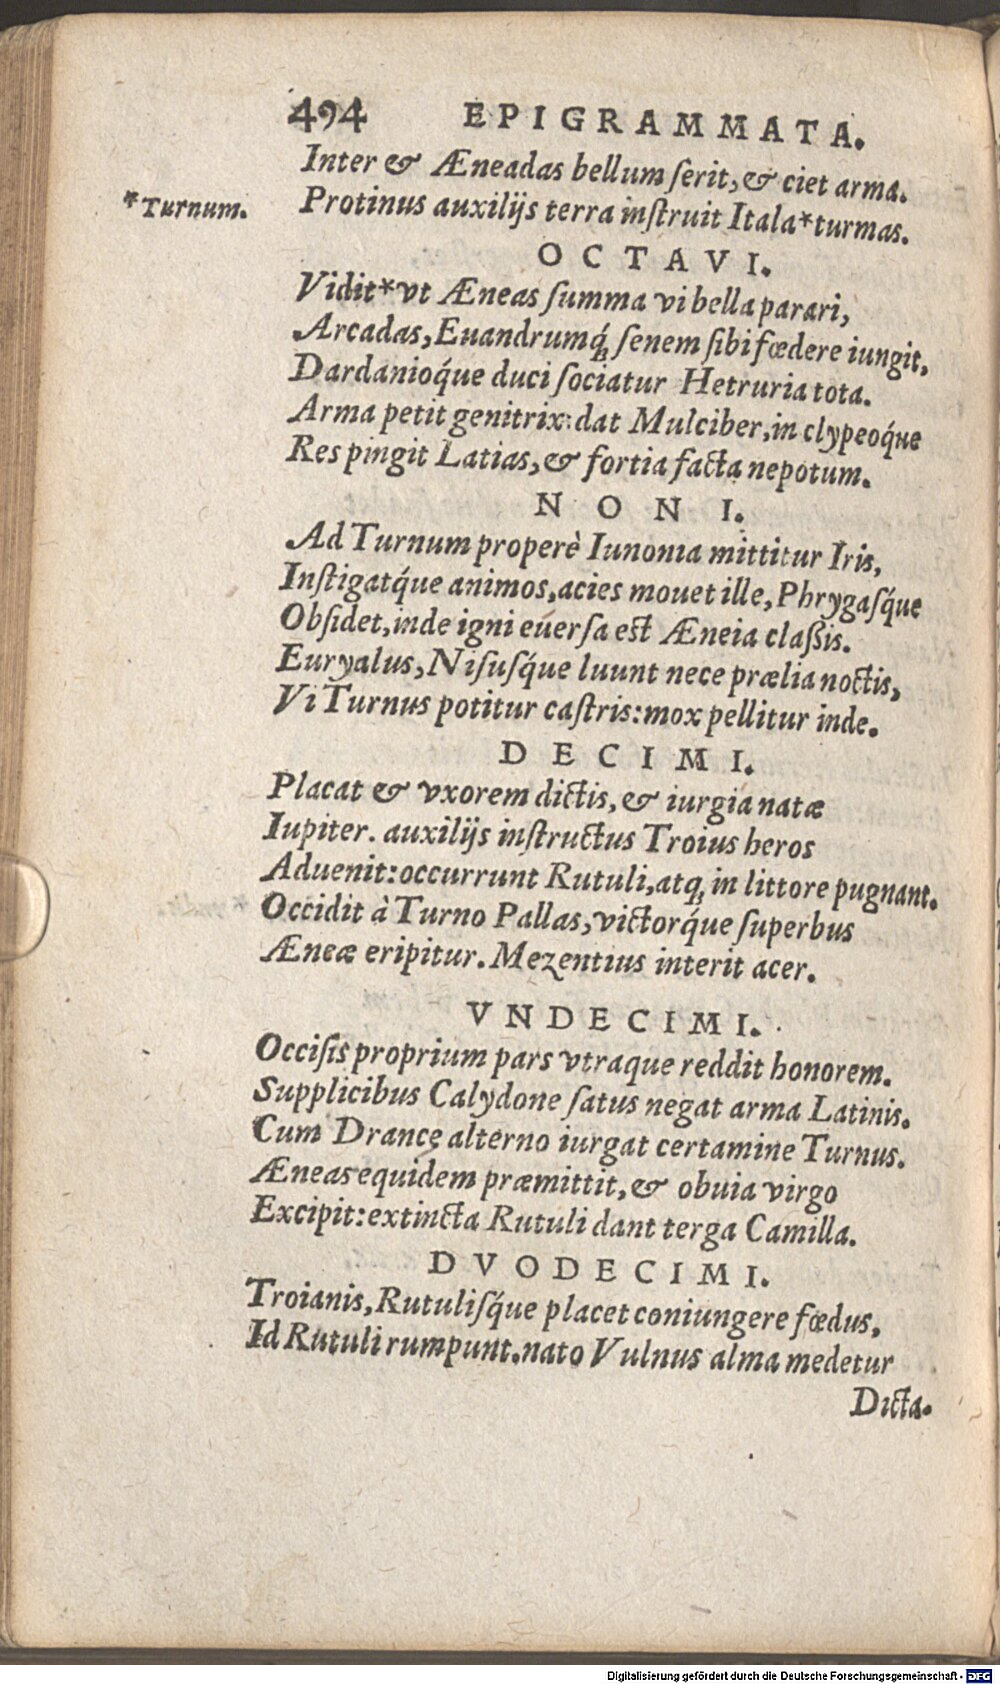 494 EPIGRAMMATA.
Inter & Æneadas bellum ſerit, & ciet arma.
*Turnum.
Protinus auxilijs terra inſtruit Itala*turmas.
OCTAVI.
Vidit*vt Æneas ſumma vi bella parari,
Arcadas, Euandrumq́; ſenem ſibi fœdere iungit,
Dardanioq́ue duci ſociatur Hetruria tota.
Arma petit genitrix: dat Mulciber, in clypeoq́ue
Res pingit Latias, & fortia facta nepotum.
NONI.
Ad Turnum properè Iunonia mittitur Iris,
Inſtigatq́ue animos, acies mouet ille, Phrygaſq́ue
Obſidet, inde igni euerſa est Æneia claßis.
Euryalus, Niſuſq́ue luunt nece prælia noctis,
Vi Turnus potitur caſtris: mox pellitur inde.
DECIMI.
Placat & vxorem dictis, & iurgia natæ
Iupiter. auxilijs inſtructus Troius heros
Aduenit: occurrunt Rutuli, atq; in littore pugnant.
Occidit à Turno Pallas, victorq́ue ſuperbus
Æneæ eripitur. Mezentius interit acer.
VNDECIMI.
Occiſis proprium pars vtraque reddit honorem.
Supplicibus Calydone ſatus negat arma Latinis.
Cum Drance alterno iurgat certamine Turnus.
Æneas equidem præmittit, & obuia virgo
Excipit: extincta Rutuli dant terga Camilla.
DVODECIMI.
Troianis, Rutuliſq́ue placet coniungere fœdus,
Id Rutuli rumpunt. nato Vulnus alma medetur
Dicta.
Digitalisierung gefördert durch die Deutsche Forschungsgemeinschaft - DFG